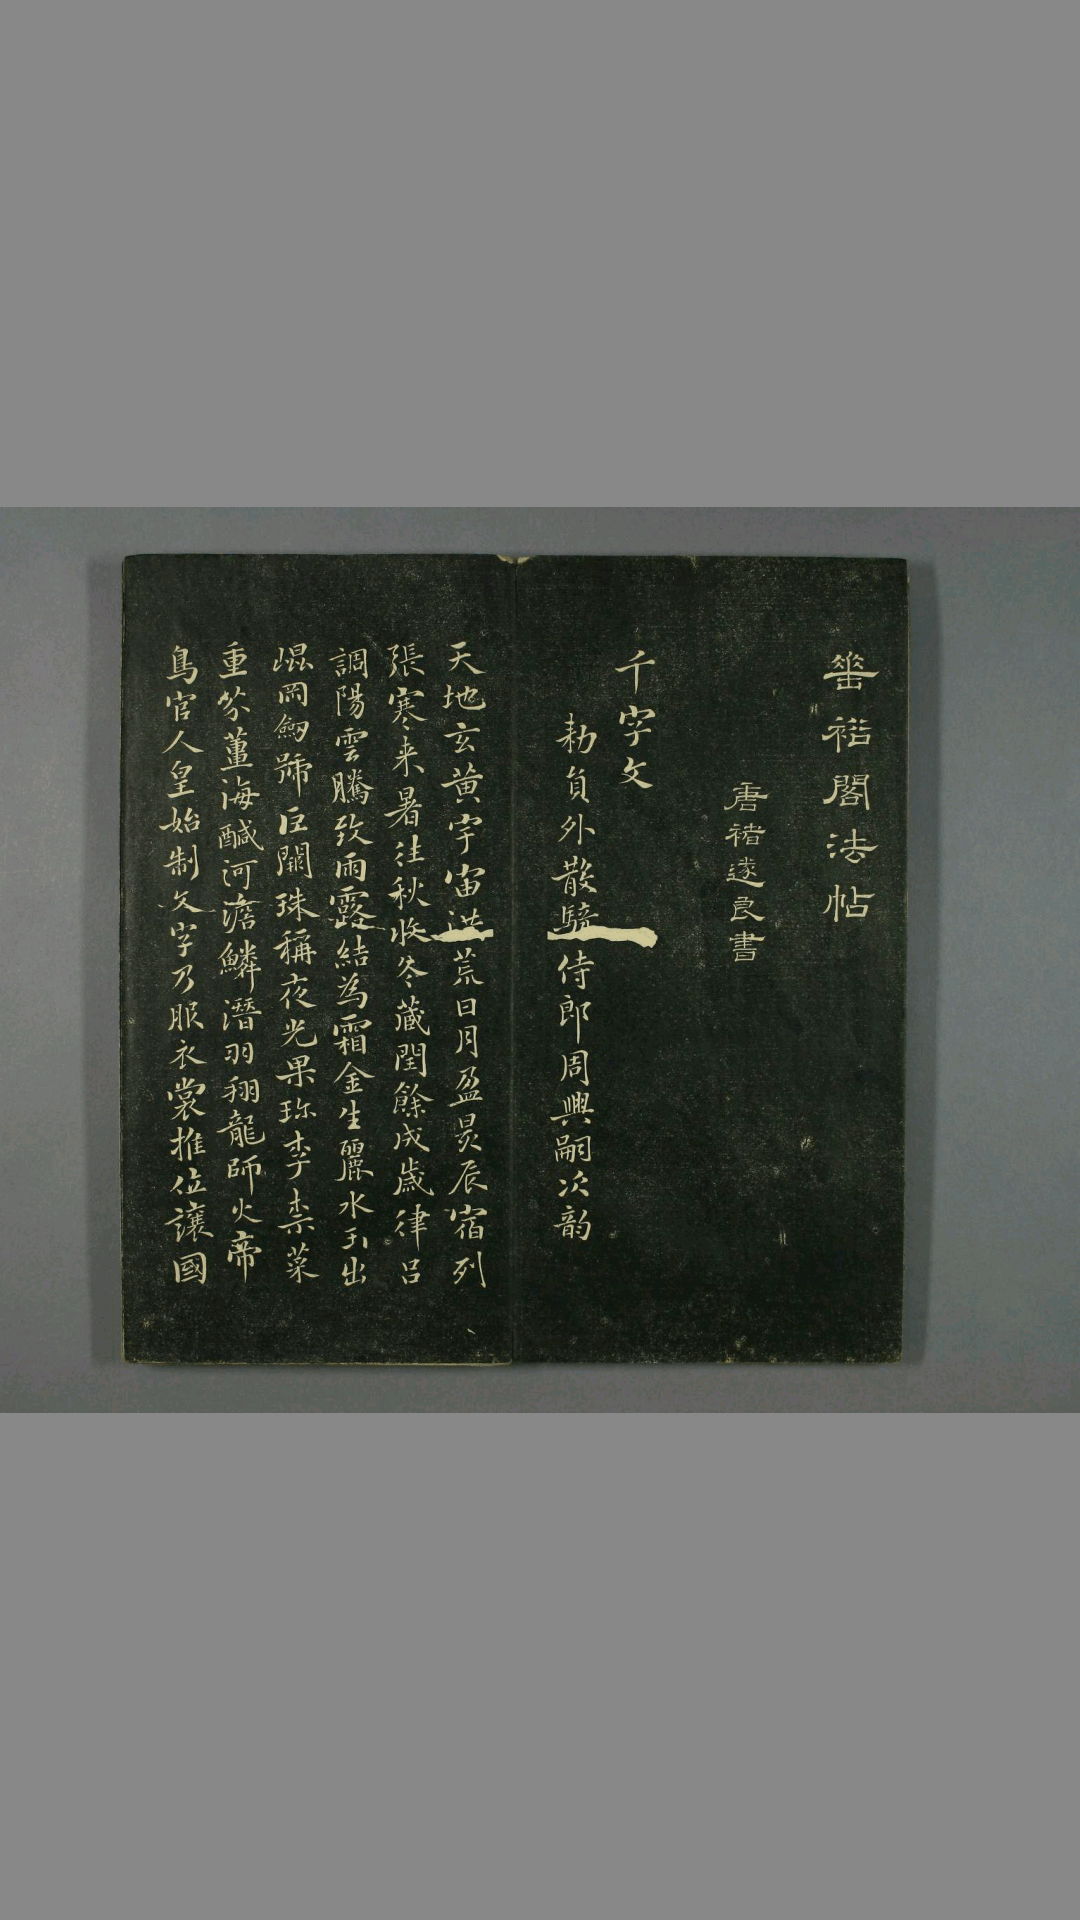 華裕閣法帖
唐褚遂良書
千字文
勑員外散騎侍郎周興嗣次韵
天地玄黃宇宙洪荒日月盈昃辰宿列
張寒来暑往秋收冬藏閏餘成歲律呂
調陽雲騰致雨露結為霜金生麗水玉出
崐岡劒號巨闕珠稱夜光果珎李柰菜
重芥薑海醎河澹鱗潛羽翔龍師火帝
鳥官人皇始制文字乃服衣裳推位讓國